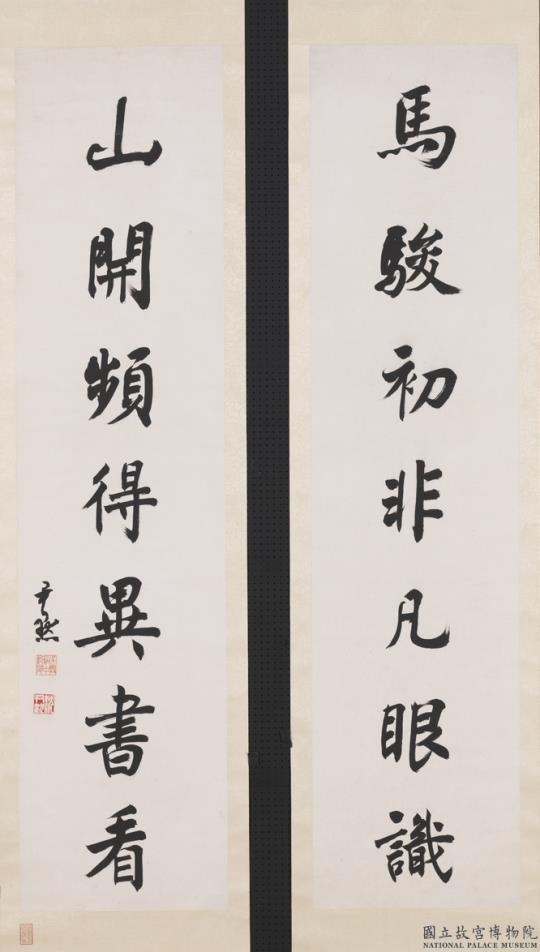 馬駿初非凡眼識
山開頻得異書看
尹默
國立故宮博物院
NATIONAL PALACE MUSEUM